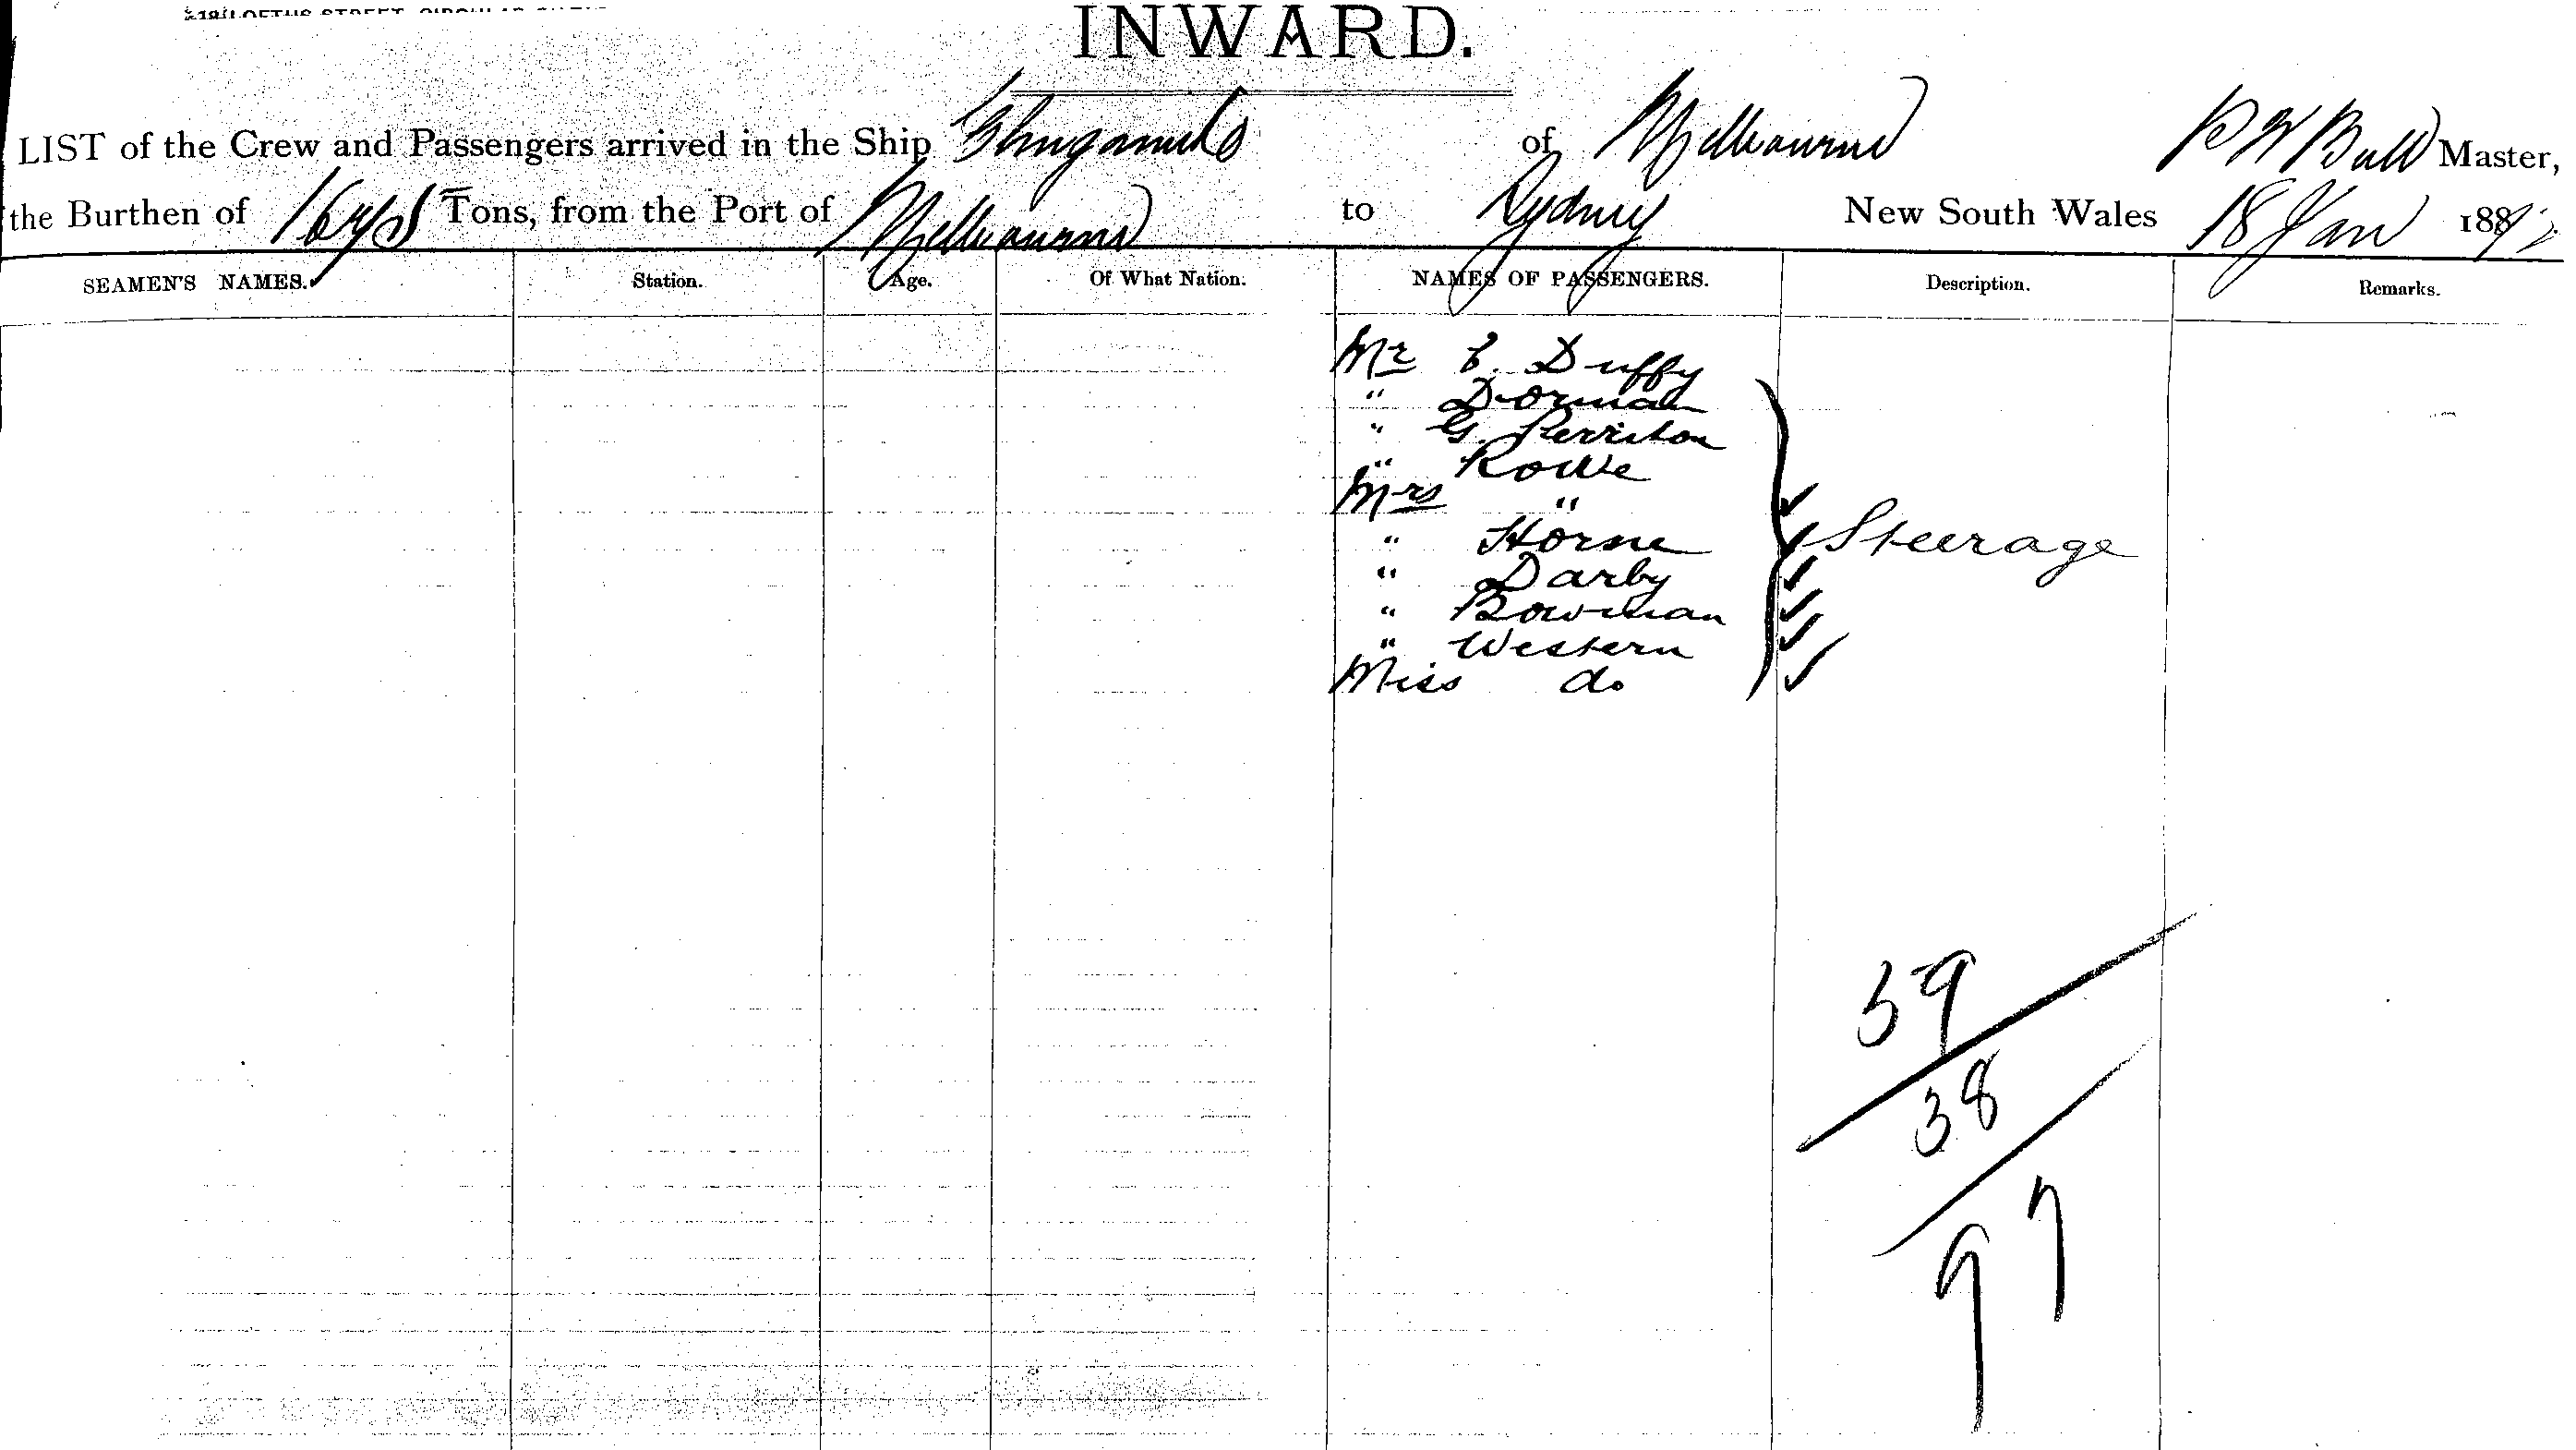 INWARD.
LIST of the Crew and Passengers arrived in the Ship of Melbourne P W Bull Master,
the Burthen of Tons, from the Port of Melbourne to Sydney New South Wales 18 Jan 1892
SEAMEN'S NAMES. Station. Age. Of What Nation. NAMES OF PASSENGERS. Description. Remarks.
Mr Duffy
" Dorman
" G.
" Rowe
Mrs "
" Horne Steerage
" Darby
" Bowman
" Western
Miss do
59
38
97